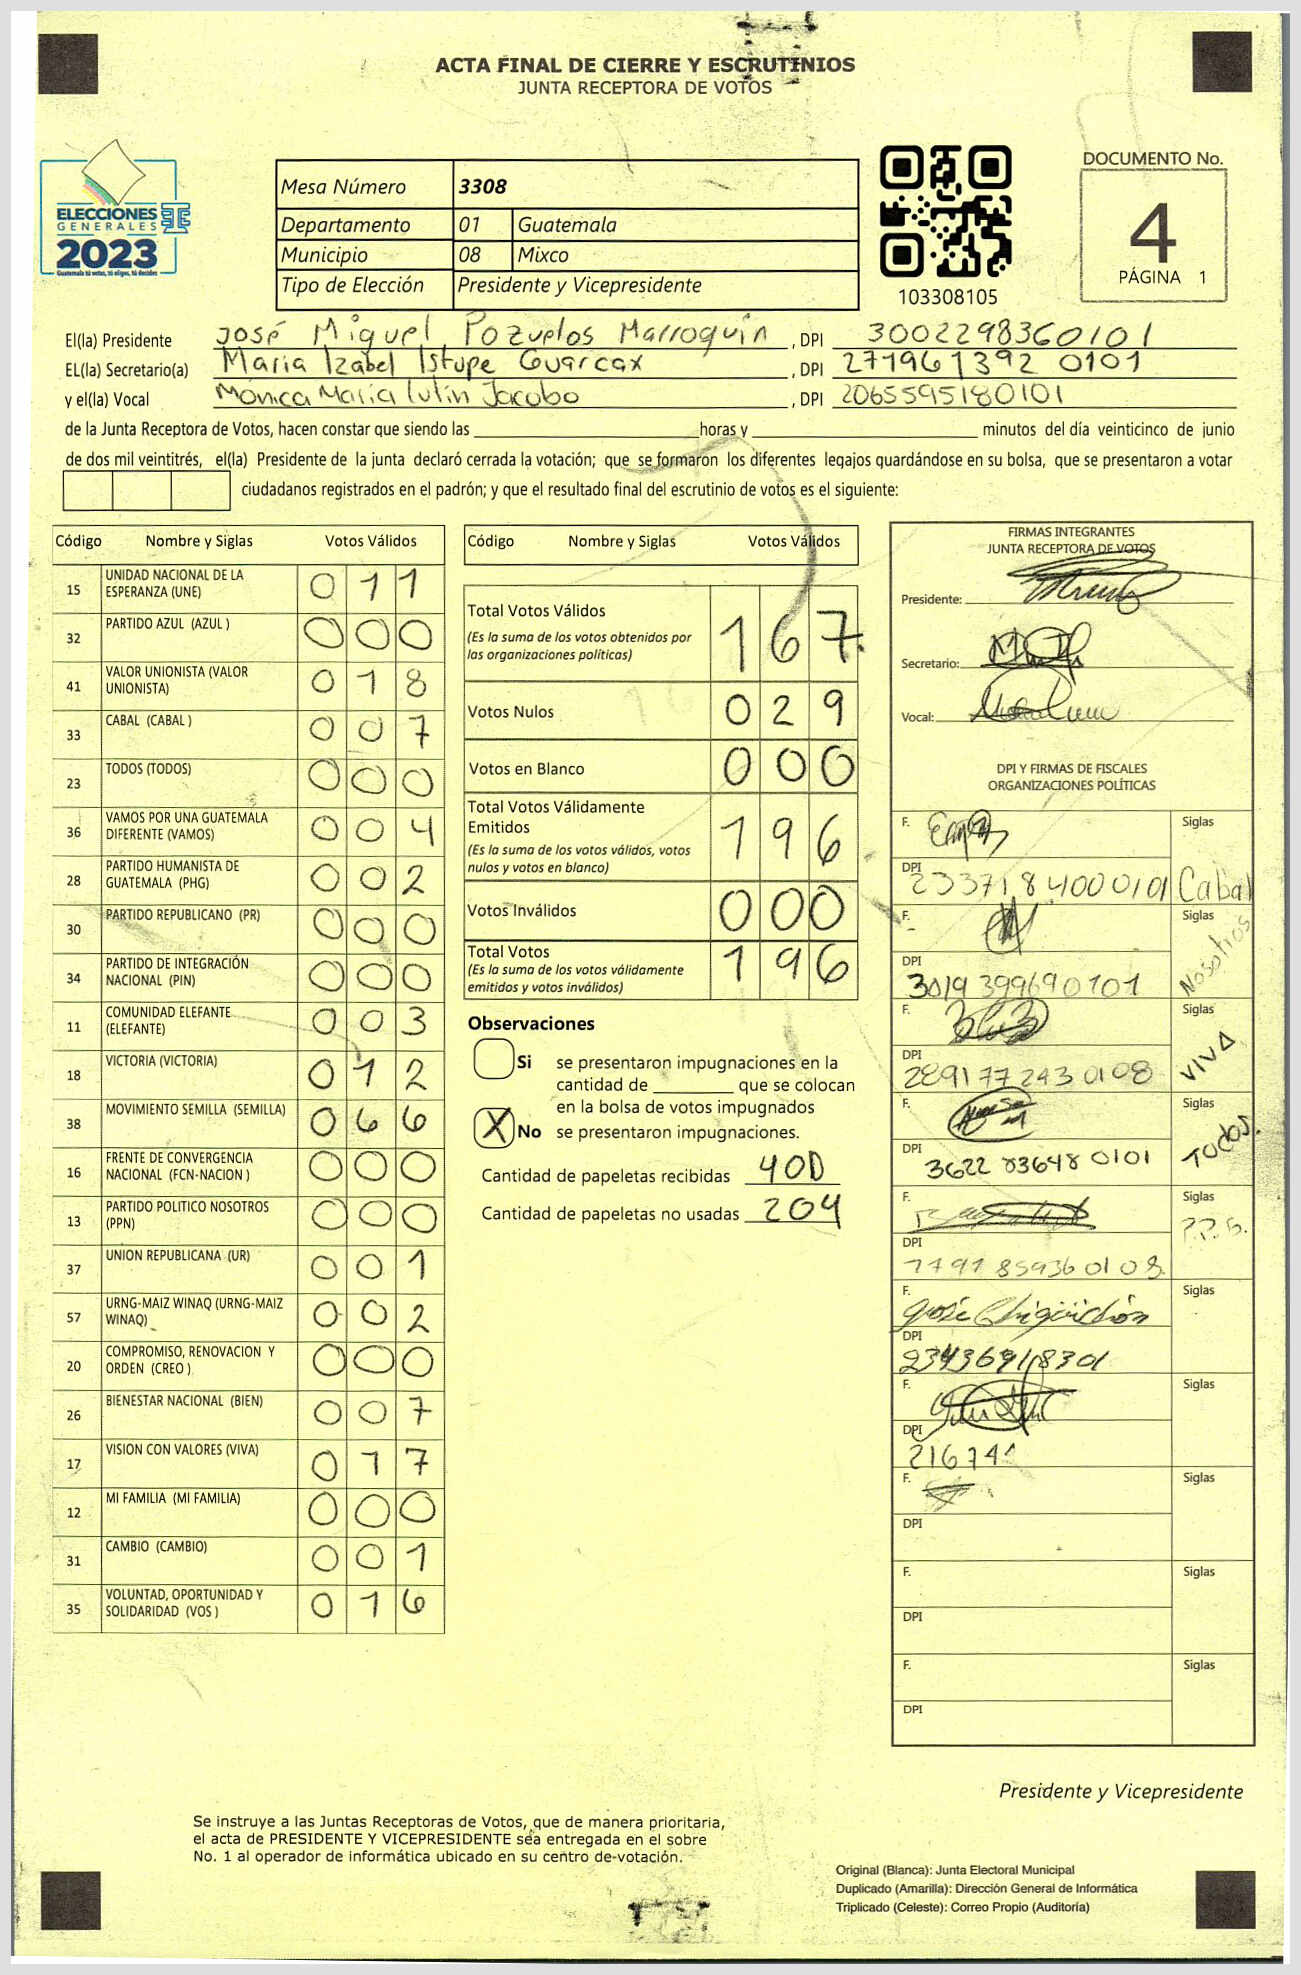 ACTA FINAL DE CIERRE Y ESCRUTINIOS
JUNTA RECEPTORA DE VOTOS
ELECCIONES
GENERALES
2023
Guatemala tú votas, tú eliges, tú decides
Mesa Número 3308
Departamento 01 Guatemala
Municipio 08 Mixco
Tipo de Elección Presidente y Vicepresidente
103308105
DOCUMENTO No.
4
PÁGINA 1
El(la) Presidente José Miguel Pozuelos Marroquín , DPI 3002298360101
EL(la) Secretario(a) Maria Izabel Istupe Guarcax , DPI 271961392 0101
y el(la) Vocal Monica Maria Jacobo , DPI 2065595180101
de la Junta Receptora de Votos, hacen constar que siendo las horas y minutos del día veinticinco de junio
de dos mil veintitrés, el(la) Presidente de la junta declaró cerrada la votación; que se formaron los diferentes legajos guardándose en su bolsa, que se presentaron a votar
ciudadanos registrados en el padrón; y que el resultado final del escrutinio de votos es el siguiente:
Código Nombre y Siglas Votos Válidos
15 UNIDAD NACIONAL DE LA ESPERANZA (UNE) 0 1 1
32 PARTIDO AZUL (AZUL ) 0 0 0
41 VALOR UNIONISTA (VALOR UNIONISTA) 0 1 8
33 CABAL (CABAL ) 0 0 7
23 TODOS (TODOS) 0 0 0
36 VAMOS POR UNA GUATEMALA DIFERENTE (VAMOS) 0 0 4
28 PARTIDO HUMANISTA DE GUATEMALA (PHG) 0 0 2
30 PARTIDO REPUBLICANO (PR) 0 0 0
34 PARTIDO DE INTEGRACIÓN NACIONAL (PIN) 0 0 0
11 COMUNIDAD ELEFANTE (ELEFANTE) 0 0 3
18 VICTORIA (VICTORIA) 0 1 2
38 MOVIMIENTO SEMILLA (SEMILLA) 0 6 6
16 FRENTE DE CONVERGENCIA NACIONAL (FCN-NACION ) 0 0 0
13 PARTIDO POLITICO NOSOTROS (PPN) 0 0 0
37 UNION REPUBLICANA (UR) 0 0 1
57 URNG-MAIZ WINAQ (URNG-MAIZ WINAQ) 0 0 2
20 COMPROMISO, RENOVACION Y ORDEN (CREO ) 0 0 0
26 BIENESTAR NACIONAL (BIEN) 0 0 7
17 VISION CON VALORES (VIVA) 0 1 7
12 MI FAMILIA (MI FAMILIA) 0 0 0
31 CAMBIO (CAMBIO) 0 0 1
35 VOLUNTAD, OPORTUNIDAD Y SOLIDARIDAD (VOS ) 0 1 6
Código Nombre y Siglas Votos Válidos
Total Votos Válidos 1 6 7
(Es la suma de los votos obtenidos por
las organizaciones políticas)
Votos Nulos 0 2 9
Votos en Blanco 0 0 0
Total Votos Válidamente
Emitidos 1 9 6
(Es la suma de los votos válidos, votos
nulos y votos en blanco)
Votos Inválidos 0 0 0
Total Votos 1 9 6
(Es la suma de los votos válidamente
emitidos y votos inválidos)
Observaciones
Si se presentaron impugnaciones en la
cantidad de que se colocan
en la bolsa de votos impugnados
X No se presentaron impugnaciones.
Cantidad de papeletas recibidas 400
Cantidad de papeletas no usadas 204
FIRMAS INTEGRANTES
JUNTA RECEPTORA DE VOTOS
Presidente:
Secretario:
Vocal:
DPI Y FIRMAS DE FISCALES
ORGANIZACIONES POLÍTICAS
F. Siglas
DPI 23371 8400 0101 Cabal
F. Siglas
DPI 3019 399690101 Nosotros
F. Siglas
DPI 289177243 0108 VIVA
F. Siglas
DPI 3622 83648 0101 TODOS.
F. Siglas
DPI
F. José Siglas
DPI
F. Siglas
DPI
F. Siglas
DPI
F. Siglas
DPI
F. Siglas
DPI
Presidente y Vicepresidente
Se instruye a las Juntas Receptoras de Votos, que de manera prioritaria,
el acta de PRESIDENTE Y VICEPRESIDENTE sea entregada en el sobre
No. 1 al operador de informática ubicado en su centro de votación.
Original (Blanca): Junta Electoral Municipal
Duplicado (Amarilla): Dirección General de Informática
Triplicado (Celeste): Correo Propio (Auditoría)